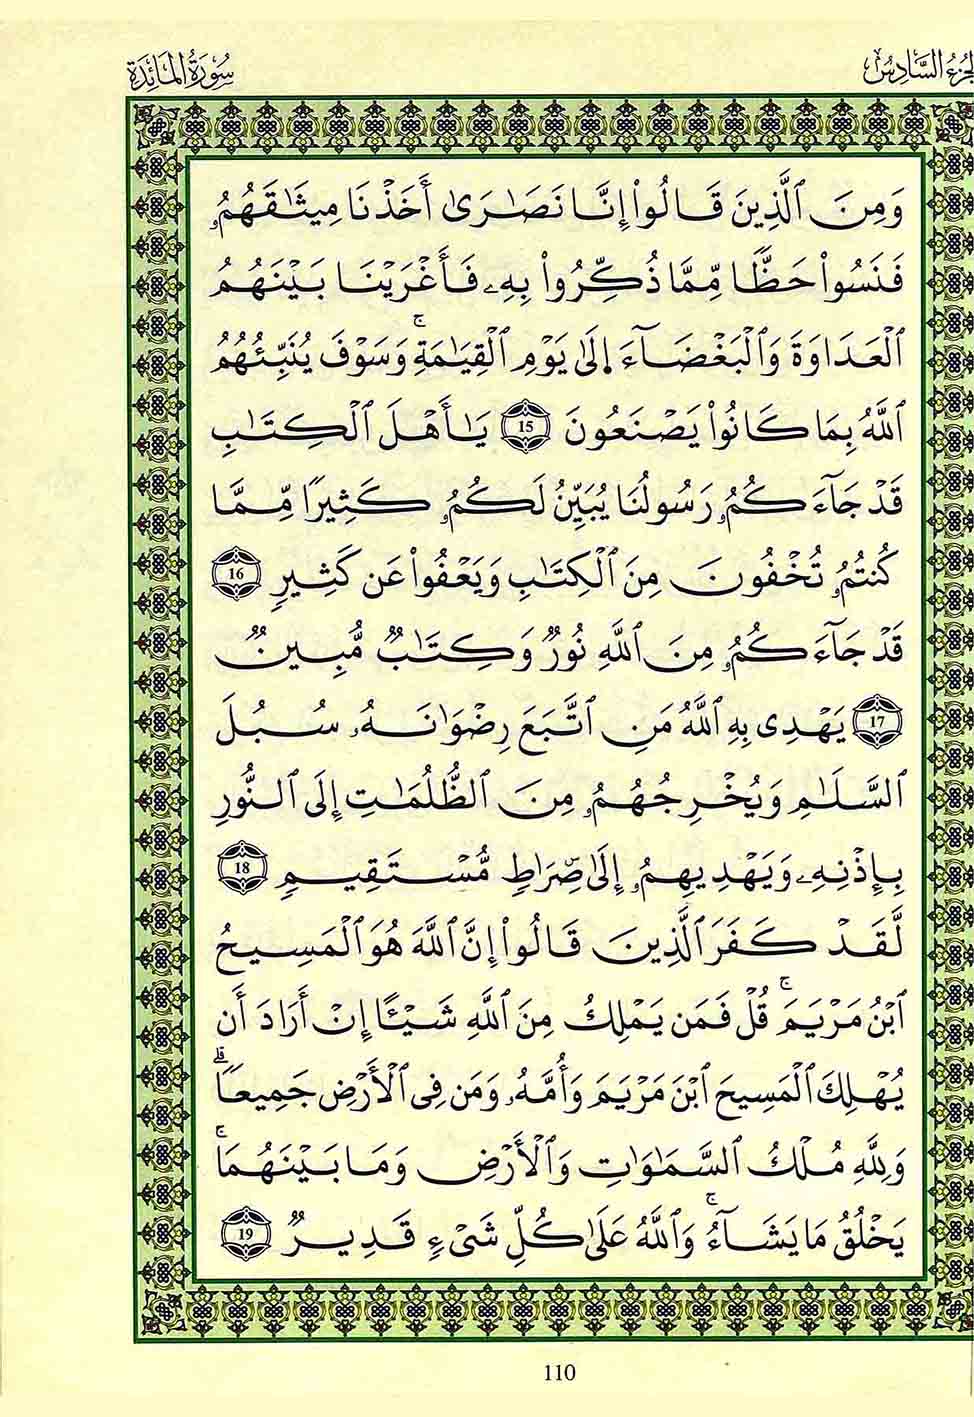 الجزء السادس
سورة المائدة
وَمِنَ ٱلَّذِينَ قَالُوا۟ إِنَّا نَصَٰرَىٰ أَخَذْنَا مِيثَٰقَهُمُۥ
فَنَسُوا۟ حَظًّا مِّمَّا ذُكِّرُوا۟ بِهِۦ فَأَغْرَيْنَا بَيْنَهُمُ
ٱلْعَدَاوَةَ وَٱلْبَغْضَآءَ اِلَىٰ يَوْمِ ٱلْقِيَٰمَةِۚ وَسَوْفَ يُنَبِّئُهُمُ
ٱللَّهُ بِمَا كَانُوا۟ يَصْنَعُونَ 15 يَٰأَهْلَ ٱلْكِتَٰبِ
قَدْ جَآءَكُمُۥ رَسُولُنَا يُبَيِّنُ لَكُمُۥ كَثِيرًا مِّمَّا
كُنتُمُۥ تُخْفُونَ مِنَ ٱلْكِتَٰبِ وَيَعْفُوا۟ عَن كَثِيرٍ 16
قَدْ جَآءَكُمُۥ مِنَ ٱللَّهِ نُورٌ وَكِتَٰبٌ مُّبِينٌ
17 يَهْدِى بِهِ ٱللَّهُ مَنِ ٱتَّبَعَ رِضْوَٰنَهُۥ سُبُلَ
ٱلسَّلَٰمِ وَيُخْرِجُهُمُۥ مِنَ ٱلظُّلُمَٰتِ إِلَى ٱلنُّورِ
بِإِذْنِهِۦ وَيَهْدِيهِمُۥ إِلَىٰ صِرَٰطٍ مُّسْتَقِيمٍ 18
لَّقَدْ كَفَرَ ٱلَّذِينَ قَالُوا۟ إِنَّ ٱللَّهَ هُوَ ٱلْمَسِيحُ
ٱبْنُ مَرْيَمَۚ قُلْ فَمَن يَمْلِكُ مِنَ ٱللَّهِ شَيْـًٔا إِنْ أَرَادَ أَن
يُهْلِكَ ٱلْمَسِيحَ ٱبْنَ مَرْيَمَ وَأُمَّهُۥ وَمَن فِى ٱلْأَرْضِ جَمِيعًاۗ
وَلِلَّهِ مُلْكُ ٱلسَّمَٰوَٰتِ وَٱلْأَرْضِ وَمَا بَيْنَهُمَاۚ
يَخْلُقُ مَا يَشَآءُۚ وَٱللَّهُ عَلَىٰ كُلِّ شَىْءٍ قَدِيرٌ 19
110